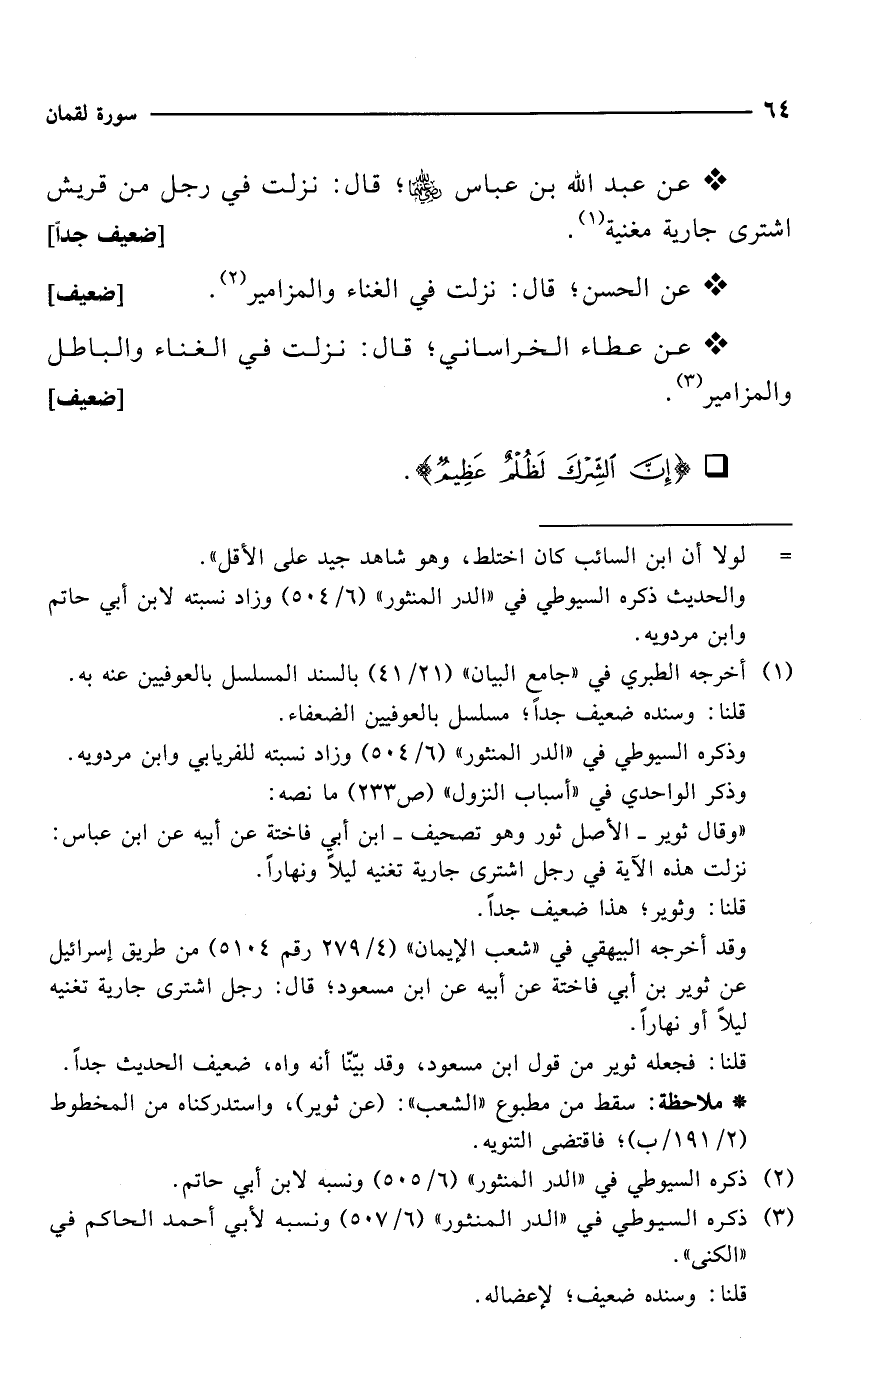 ٦٤ سورة لقمان
❖ عن عبد الله بن عباس ﵄؛ قال: نزلت في رجل من قريش
اشترى جارية مغنية(١). [ضعيف جداً]
❖ عن الحسن؛ قال: نزلت في الغناء والمزامير(٢). [ضعيف]
❖ عن عطاء الخراساني؛ قال: نزلت في الغناء والباطل
والمزامير(٣). [ضعيف]
□ ﴿إِنَّ ٱلشِّرْكَ لَظُلْمٌ عَظِيمٌ﴾.
= لولا أن ابن السائب كان اختلط، وهو شاهد جيد على الأقل».
والحديث ذكره السيوطي في «الدر المنثور» (٦/ ٥٠٤) وزاد نسبته لابن أبي حاتم
وابن مردويه.
(١) أخرجه الطبري في «جامع البيان» (٢١/ ٤١) بالسند المسلسل بالعوفيين عنه به.
قلنا: وسنده ضعيف جداً؛ مسلسل بالعوفيين الضعفاء.
وذكره السيوطي في «الدر المنثور» (٦/ ٥٠٤) وزاد نسبته للفريابي وابن مردويه.
وذكر الواحدي في «أسباب النزول» (ص٢٣٣) ما نصه:
«وقال ثوير ـ الأصل ثور وهو تصحيف ـ ابن أبي فاختة عن أبيه عن ابن عباس:
نزلت هذه الآية في رجل اشترى جارية تغنيه ليلاً ونهاراً.
قلنا: وثوير؛ هذا ضعيف جداً.
وقد أخرجه البيهقي في «شعب الإيمان» (٤/ ٢٧٩ رقم ٥١٠٤) من طريق إسرائيل
عن ثوير بن أبي فاختة عن أبيه عن ابن مسعود؛ قال: رجل اشترى جارية تغنيه
ليلاً أو نهاراً.
قلنا: فجعله ثوير من قول ابن مسعود، وقد بيّنّا أنه واه، ضعيف الحديث جداً.
* ملاحظة: سقط من مطبوع «الشعب»: (عن ثوير)، واستدركناه من المخطوط
(٢/ ١٩١/ ب)؛ فاقتضى التنويه.
(٢) ذكره السيوطي في «الدر المنثور» (٦/ ٥٠٥) ونسبه لابن أبي حاتم.
(٣) ذكره السيوطي في «الدر المنثور» (٦/ ٥٠٧) ونسبه لأبي أحمد الحاكم في
«الكنى».
قلنا: وسنده ضعيف؛ لإعضاله.